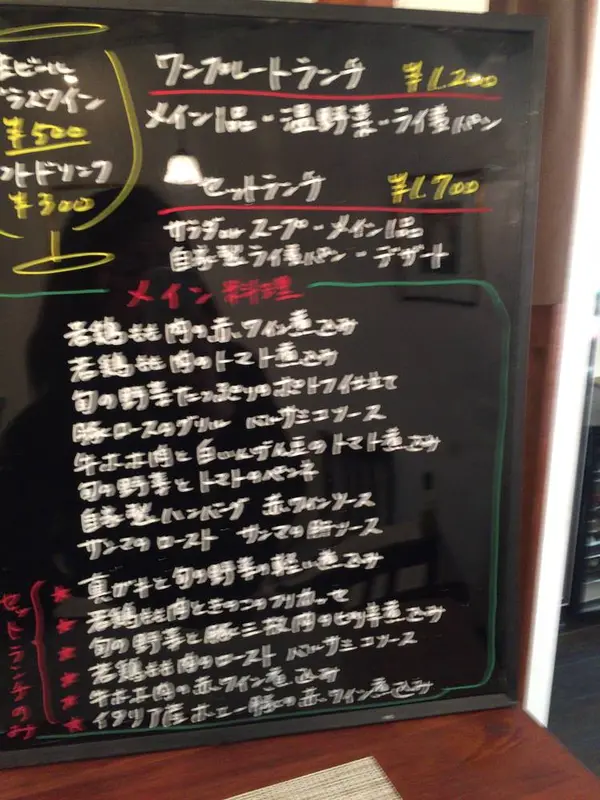 生ビール
グラスワイン
¥500
ソフトドリンク
¥300
ワンプレートランチ ¥1,200
メイン1品・温野菜・ライ麦パン
セットランチ ¥1,700
サラダ スープ・メイン1品
自家製ライ麦パン・デザート
メイン料理
若鶏もも肉の赤ワイン煮込み
若鶏もも肉のトマト煮込み
旬の野菜たっぷりのポトフ仕立て
豚ロースのグリル バルサミコソース
牛ホホ肉と白いんげん豆のトマト煮込み
旬の野菜とトマトのペンネ
自家製ハンバーグ 赤ワインソース
サンマのロースト サンマの肝ソース
セットランチのみ
★ 真ガキと旬の野菜の軽い煮込み
★ 若鶏もも肉ときのこのフリカッセ
★ 旬の野菜と豚三枚肉のピリ辛煮込み
★ 若鶏もも肉のロースト バルサミコソース
★ 牛ホホ肉の赤ワイン煮込み
★ イタリア産ホエー豚の赤ワイン煮込み